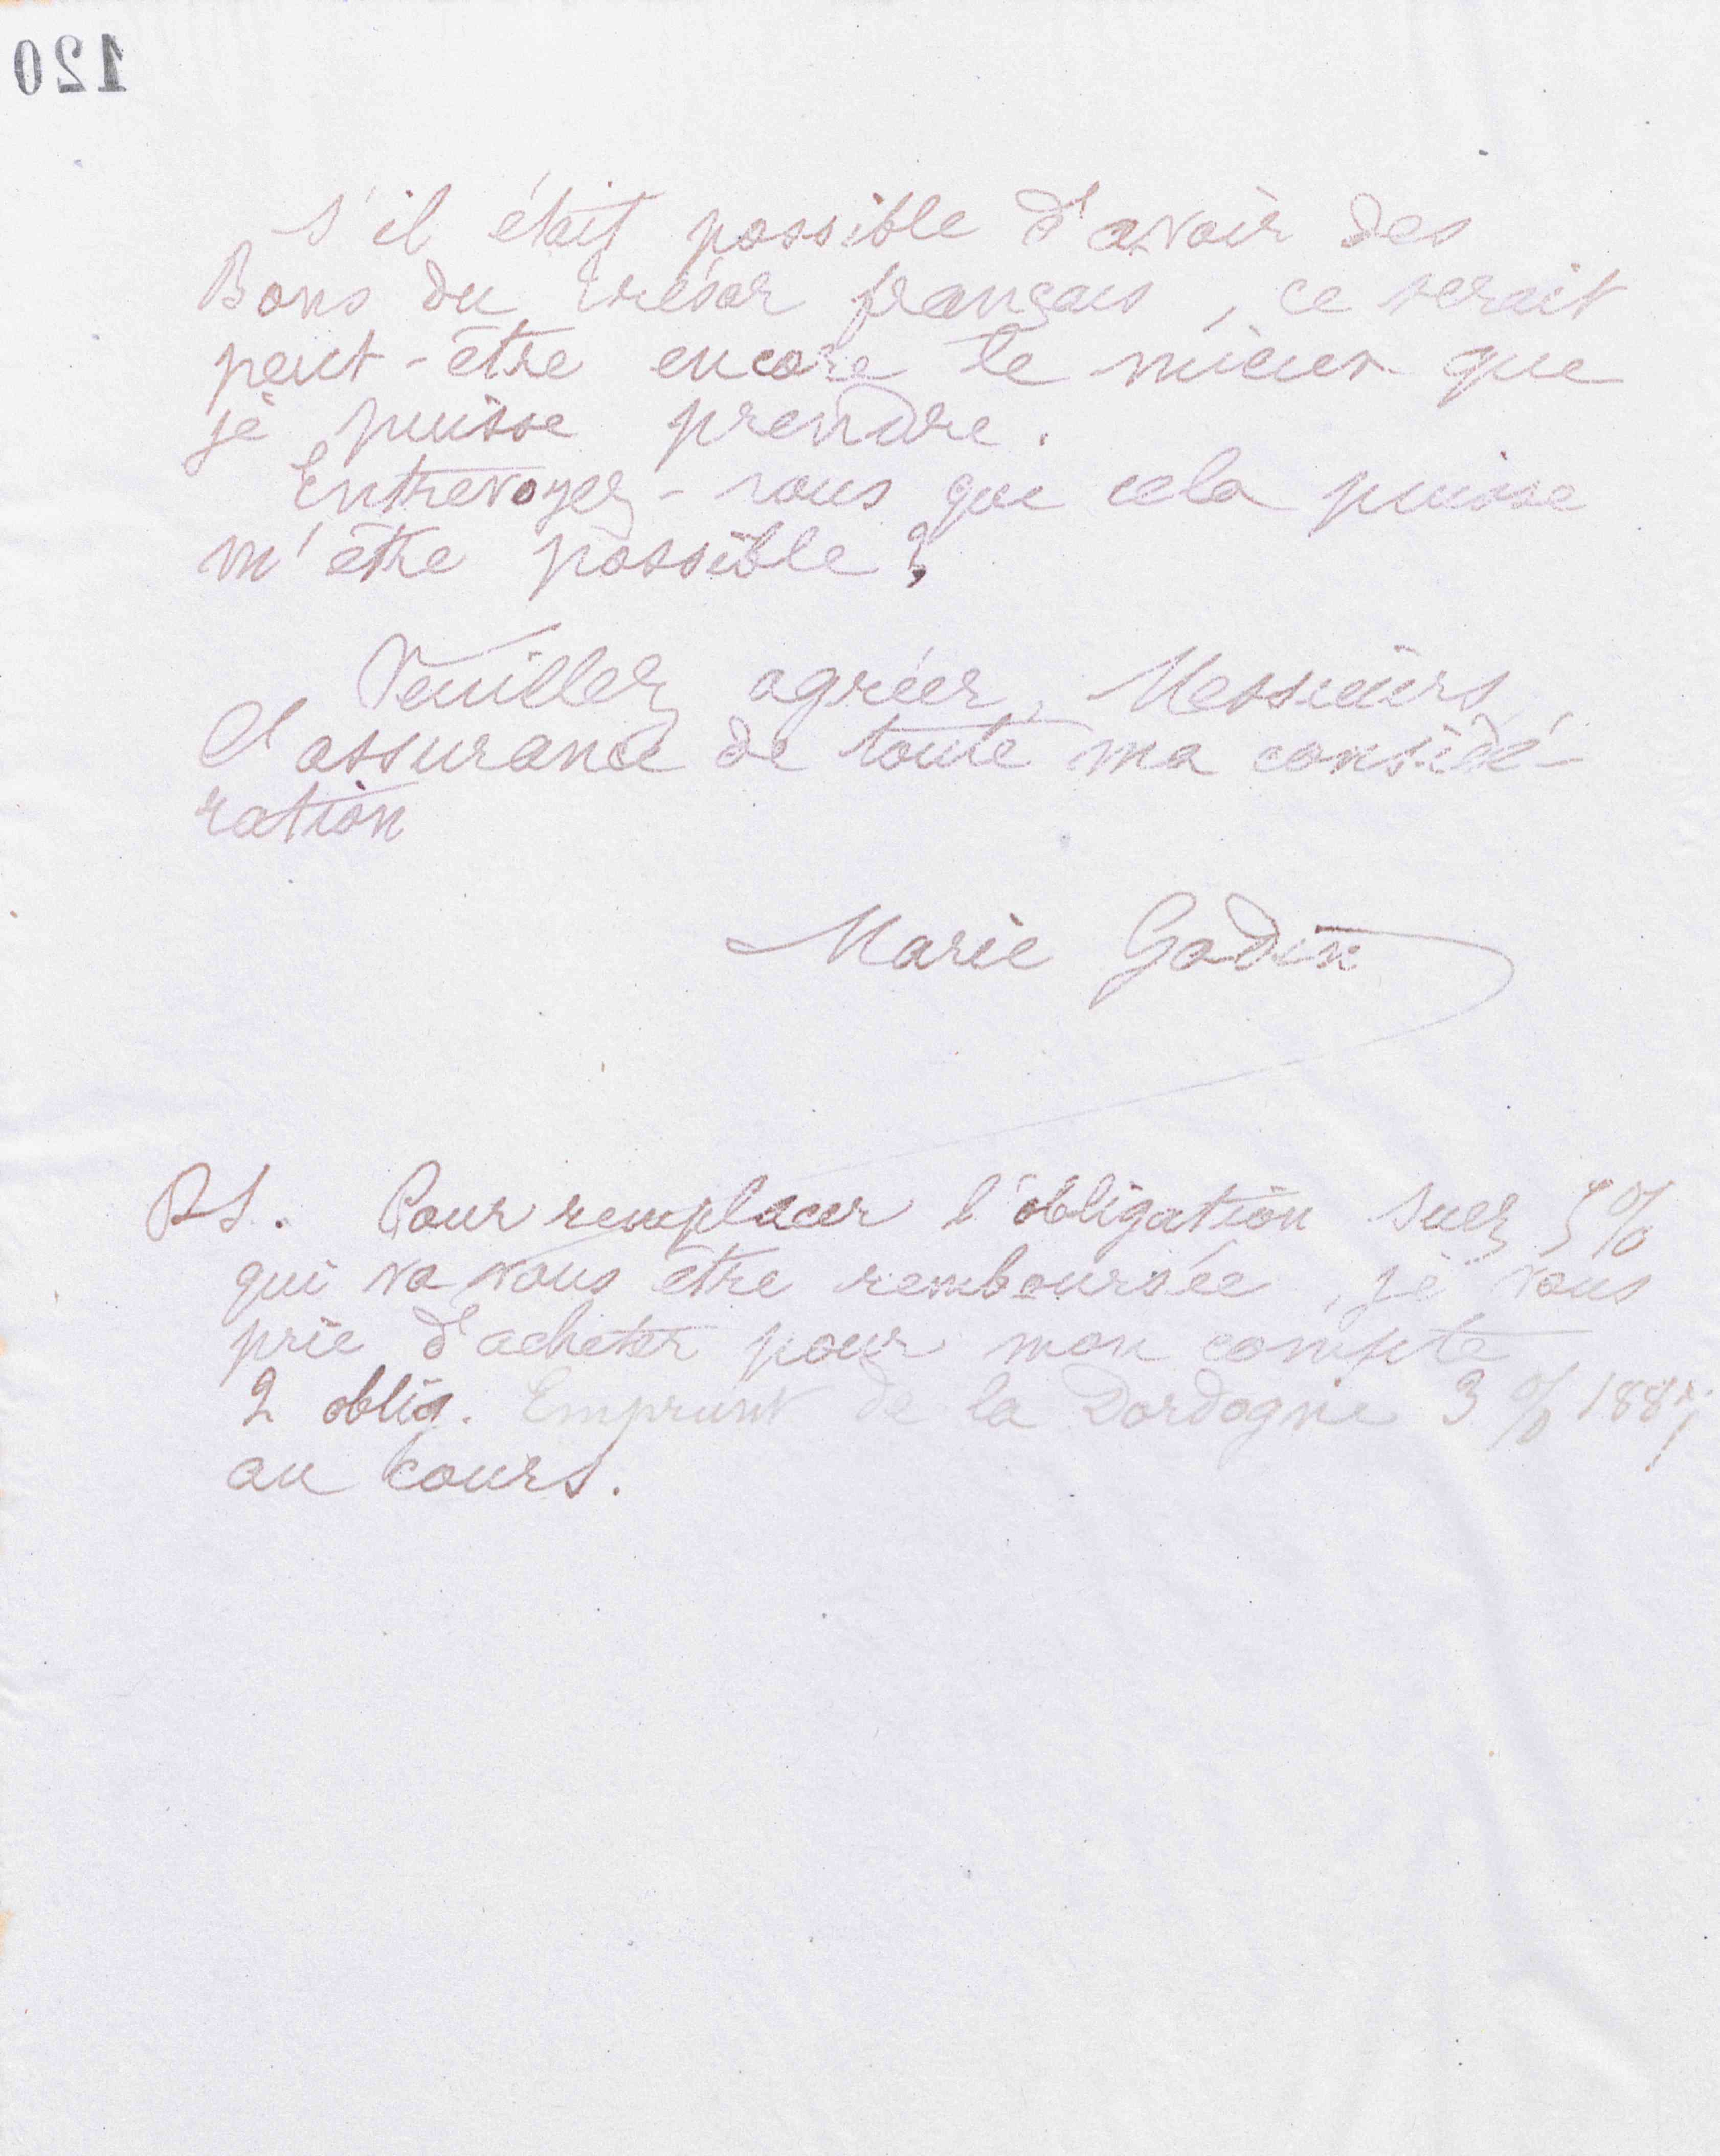 120
S'il était possible d'avoir des
Bons du trésor français, ce serait
peut-être encore le mieux que
je puisse prendre.
Entrevoyez-vous que cela puisse
m'être possible ?
Veuillez agréer, Messieurs,
l'assurance de toute ma considé-
ration
Marie Godin
PS. Pour remplacer l'obligation Suez 5%
qui va vous être remboursée, je vous
prie d'acheter pour mon compte
2 oblig. Emprunt de la Dordogne 3%
au cours.